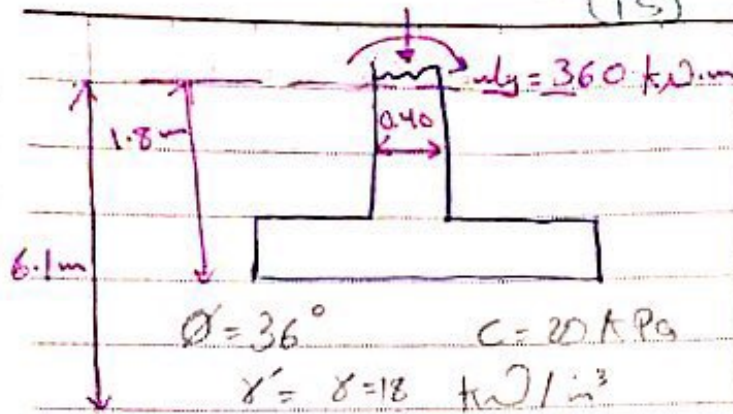 (15)
My = 360 kN.m
1.8m
0.40
6.1m
Ø = 36° C = 20 KPa
γ' = γ = 18 kN/m³